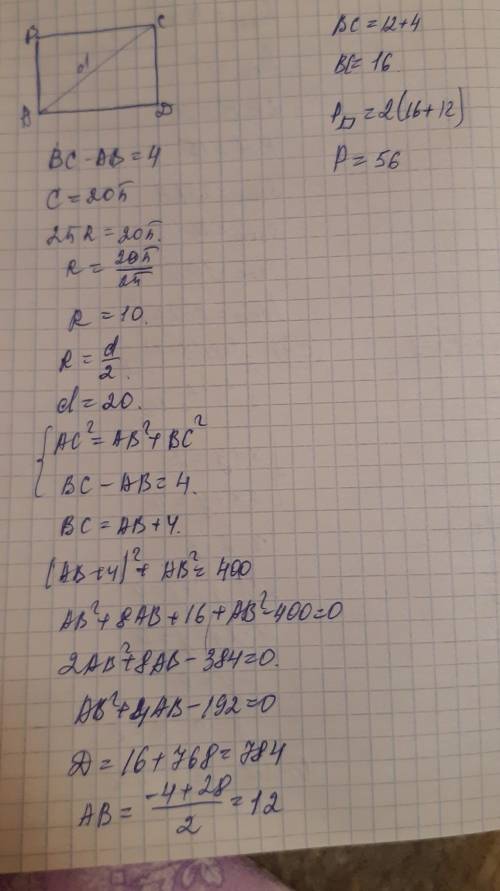 B C
d
A D
BC - AB = 4
C = 20π
2πR = 20π.
R = 20π/2π
R = 10.
R = d/2.
d = 20.
{ AC² = AB² + BC²
BC - AB = 4.
BC = AB + 4.
(AB + 4)² + AB² = 400
AB² + 8AB + 16 + AB² - 400 = 0
2AB² + 8AB - 384 = 0.
AB² + 4AB - 192 = 0
D = 16 + 768 = 784
AB = (-4 + 28)/2 = 12
BC = 12 + 4
BC = 16
P▭ = 2(16 + 12)
P = 56